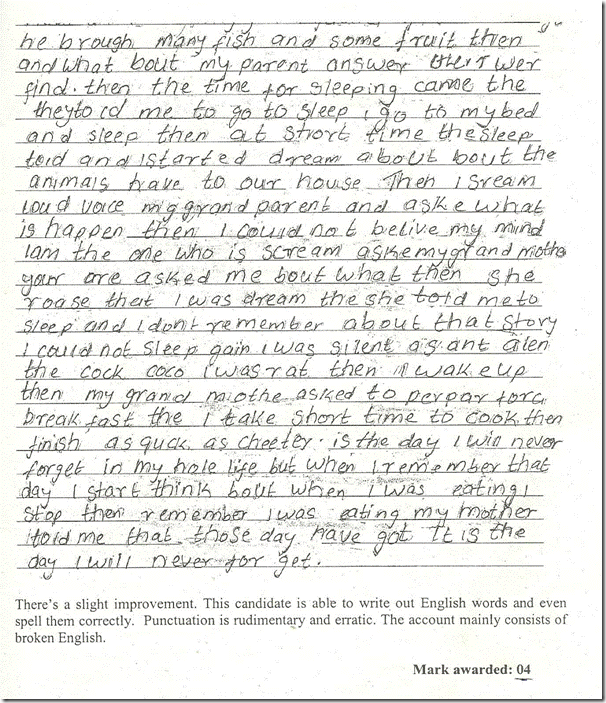 he brough many fish and some fruit then
and what bout my parent answer wer
find. then the time for sleeping came the
they told me to go to sleep, i go to my bed
and sleep then at short time the sleep
told and I started dream about bout the
animals have to our house Then I sream
loud voice my grand parent and aske what
is happen then I could not belive my mind
Iam the one who is scream aske my grand mothe
your are asked me bout what then she
roase that I was dream the she told me to
sleep and I don't remember about that story
I could not sleep gain I was silent as ant
the cock coco I was rat then wake up
then my grand mothe asked to perpar
break fast the I take short time to cook then
finish as quck as cheeter. is the day I will never
forget in my hole life but when I remember that
day I start think bout when I was eating,
stop then remember I was eating my mother
told me that those day have got It is the
day I will never for get.
There's a slight improvement. This candidate is able to write out English words and even
spell them correctly. Punctuation is rudimentary and erratic. The account mainly consists of
broken English.
Mark awarded: 04